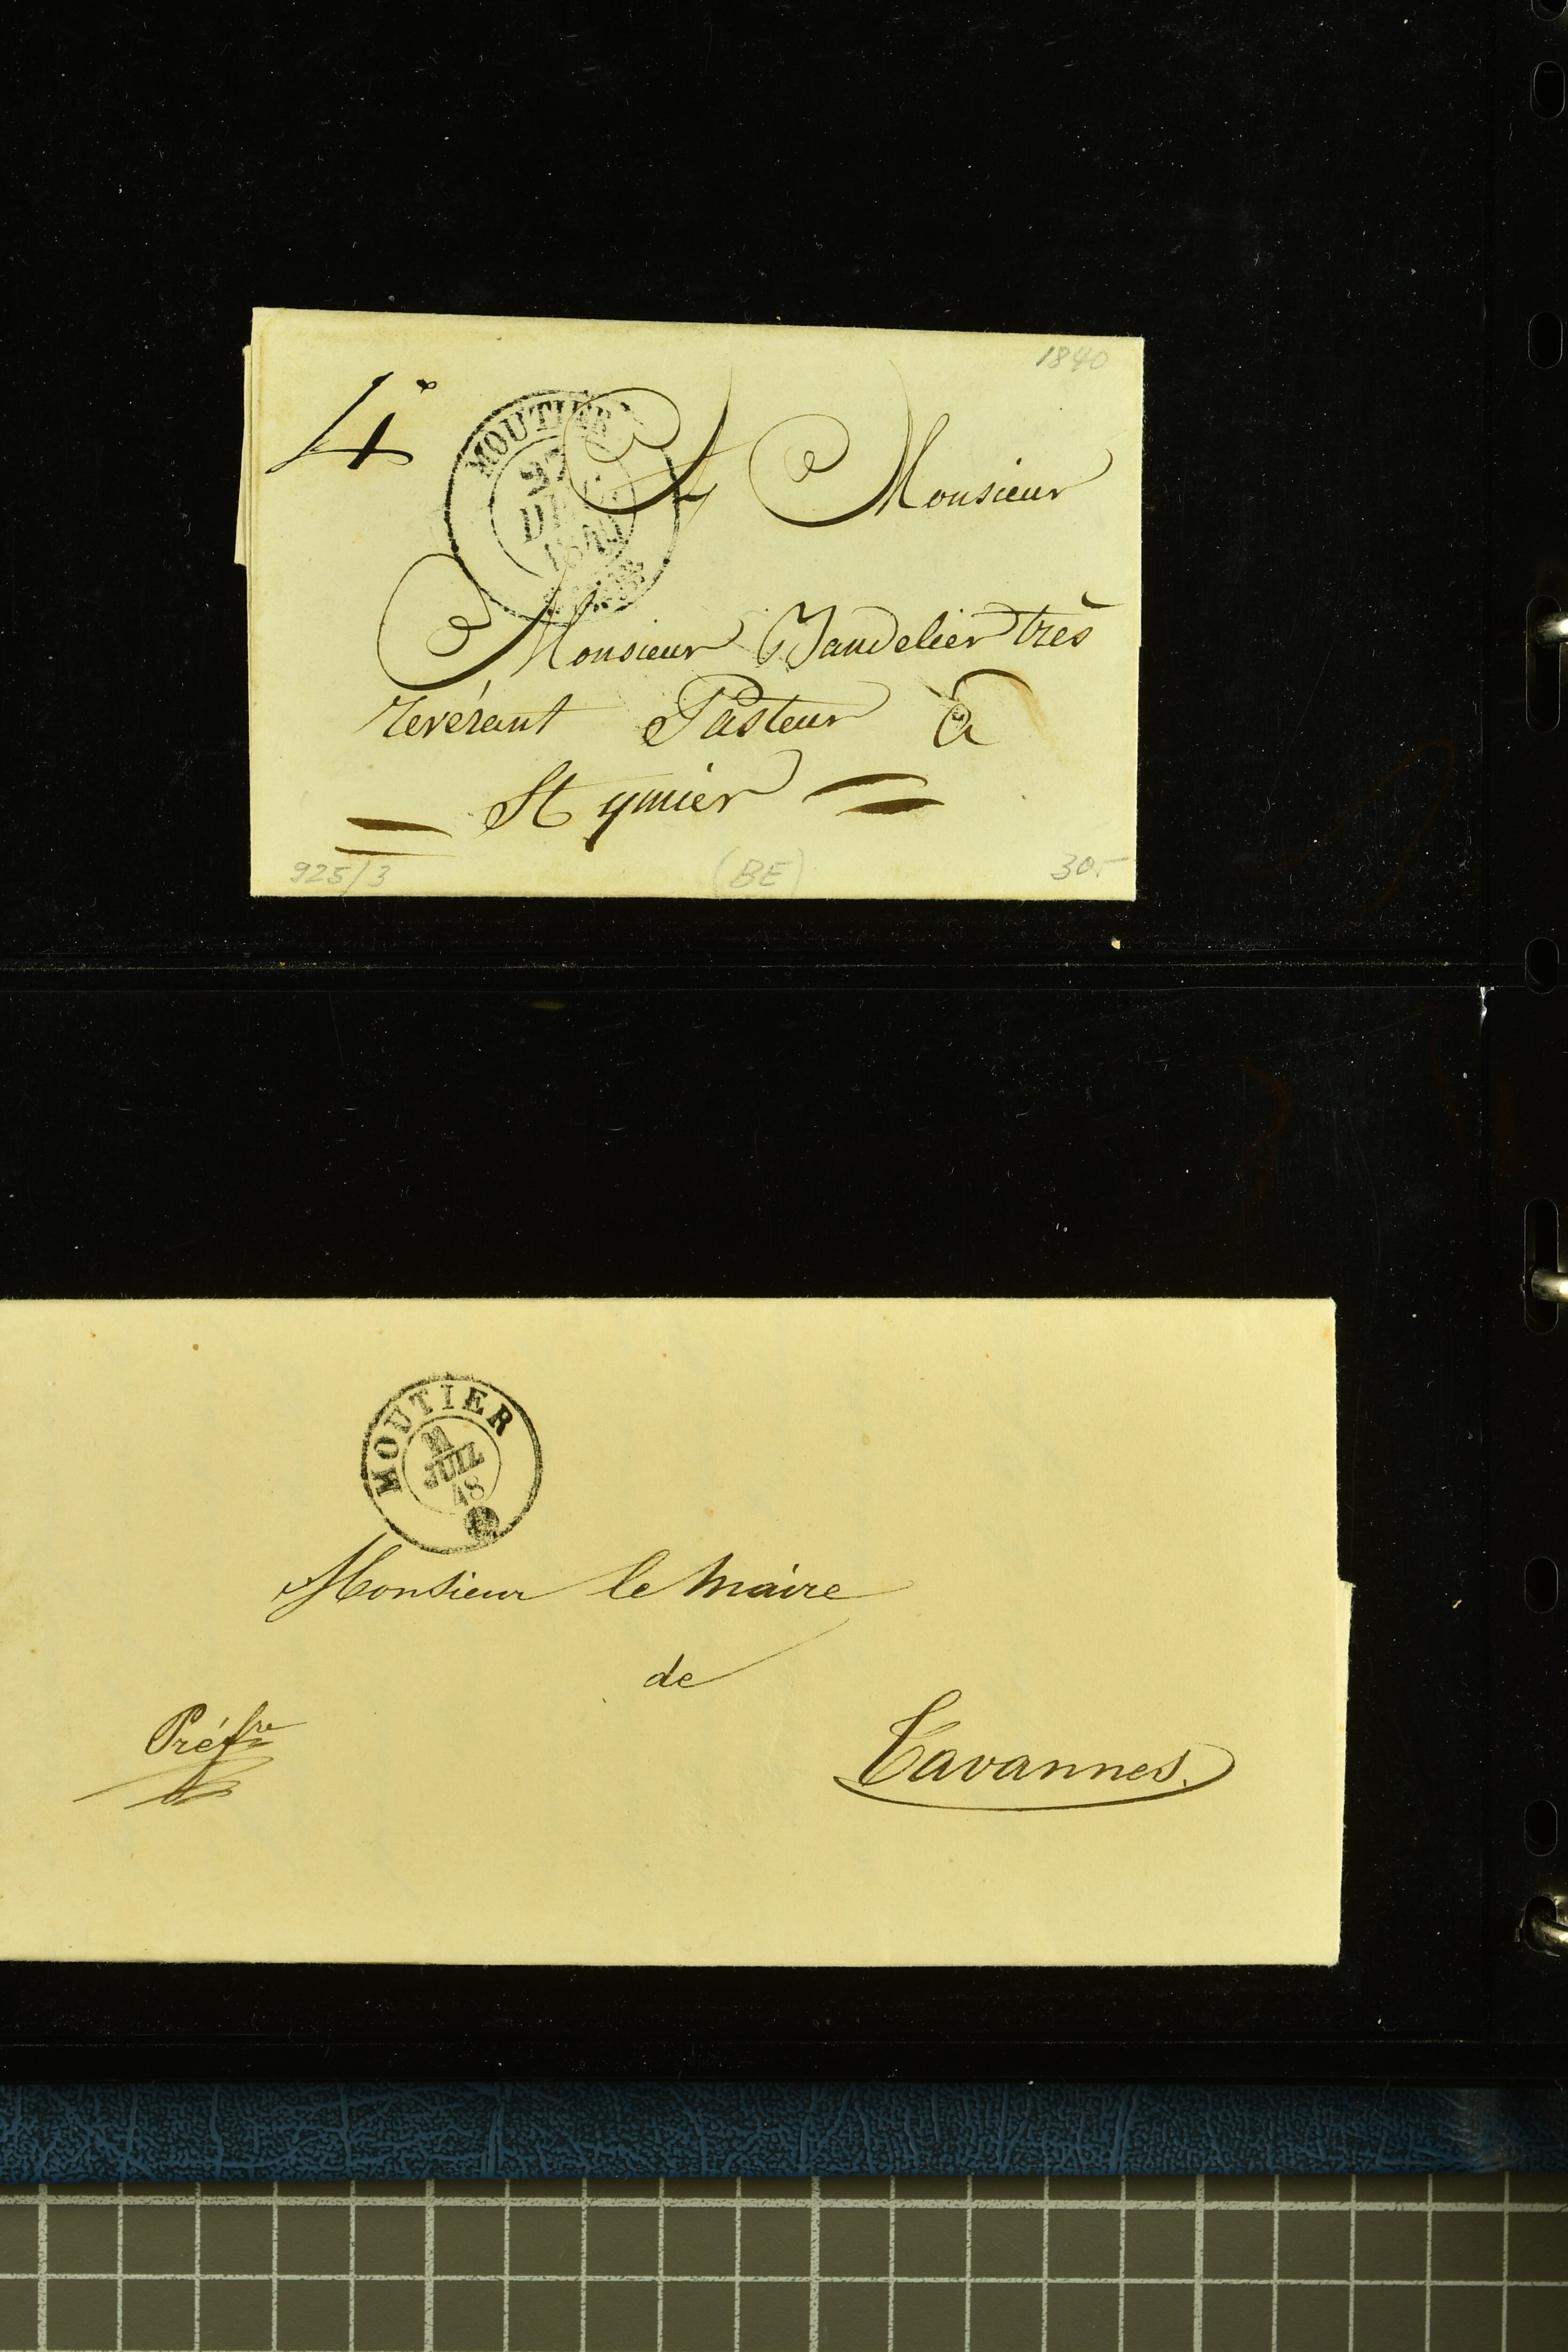 1840
4
MOUTIER
27
DEC
1840
A Monsieur
Monsieur Vandelier très
revérant Pasteur à
St ymier
925/3 (BE) 30.-
MOUTIER
21
JUIL
48
Monsieur le Maire
de
Préfre
Tavannes.